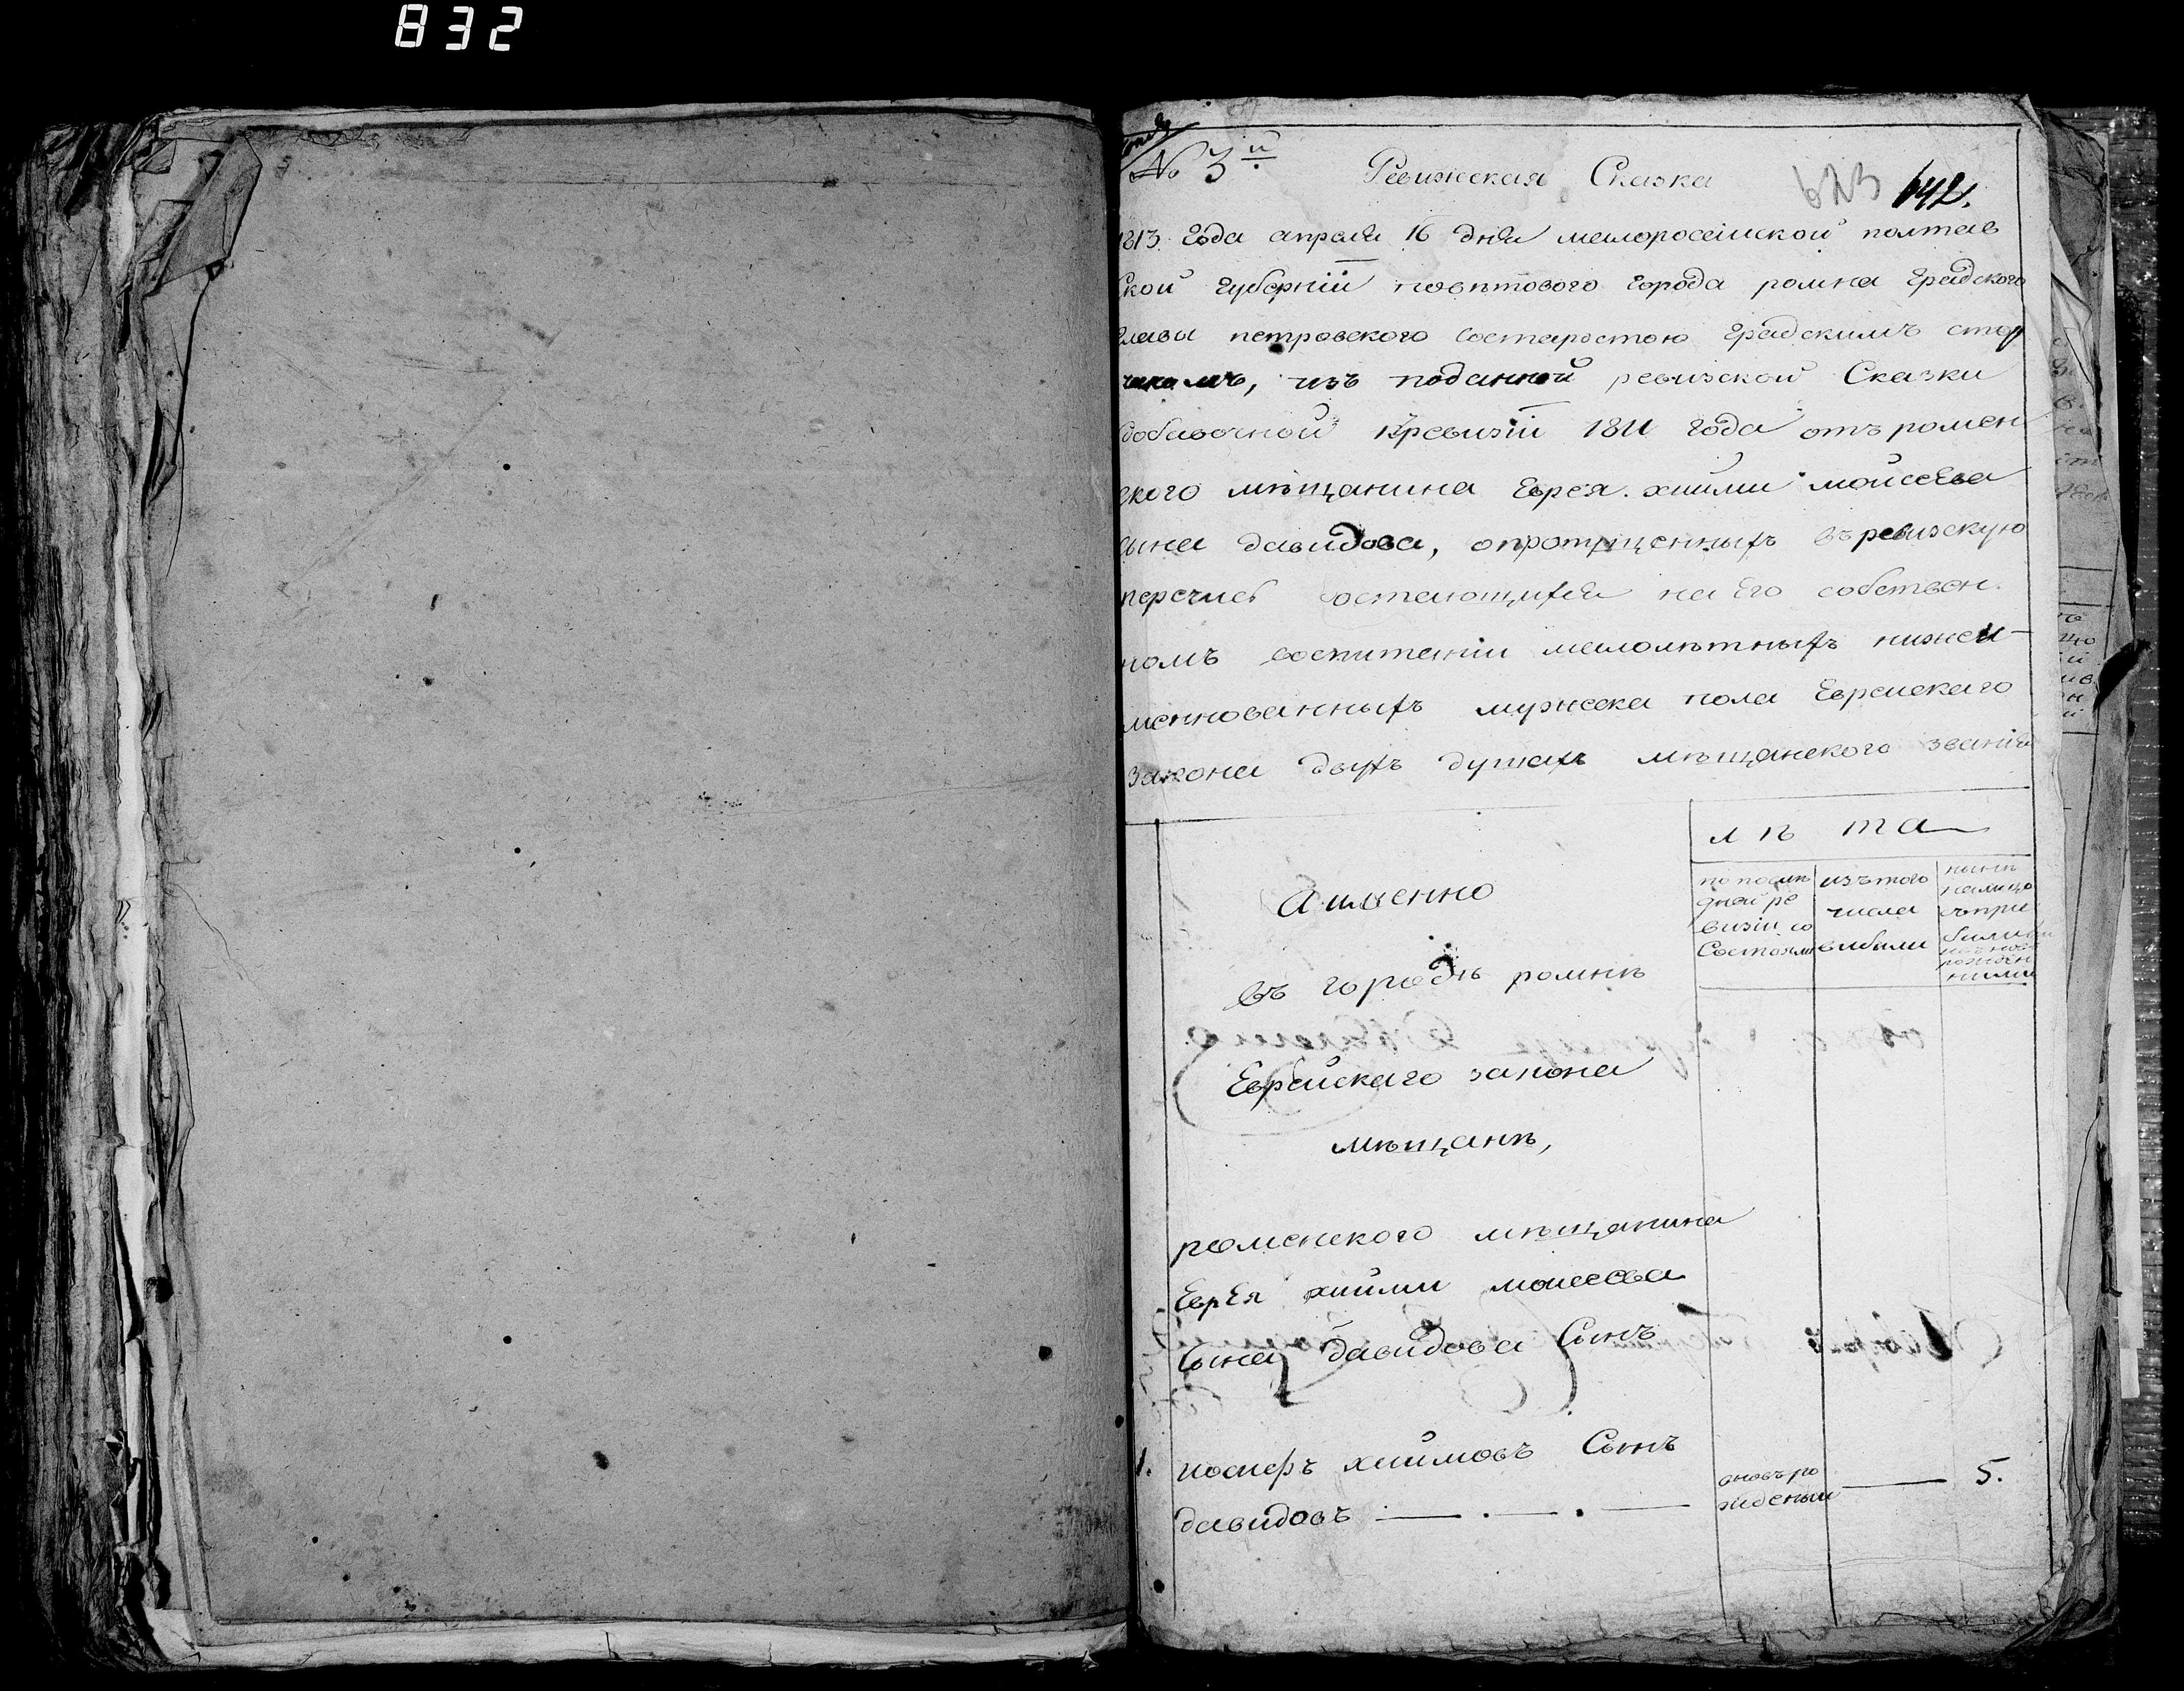 832
№ 3й
Ревижская Сказка
623 642.
1813 Года апреля 16 дня малоросейской полтав
ской губернїи повѣтового города ромна градского
главы петровского состаростою градскимъ
изъ поданной ревизской Сказки
добавочной кревизїи 1811 года отъ ромен
ского мѣщанина Еврея хаими мойсеева
сына давидова, въ ревизскую
остающихся на Его собствен
номъ воспитанїи малолѣтныхъ нижеи-
меннованныхъ мужеска пола Еврейскаго
закона двухъ душахъ мѣщанского званїя
лѣта
Аименно
по послѣ
дней ре
визїи со
Состояли
изъ того
числа
выбыли
нынѣ
налицо
съ при
рожден
ними
въ городѣ ромнѣ
Еврейскаго закона
мѣщанѣ,
роменского мѣщанина
Еврея хаими моисеева
Сына давидова Сынъ
1. иосифъ хаимовъ Сынъ
давидовъ
вновь ро
жденый
5.